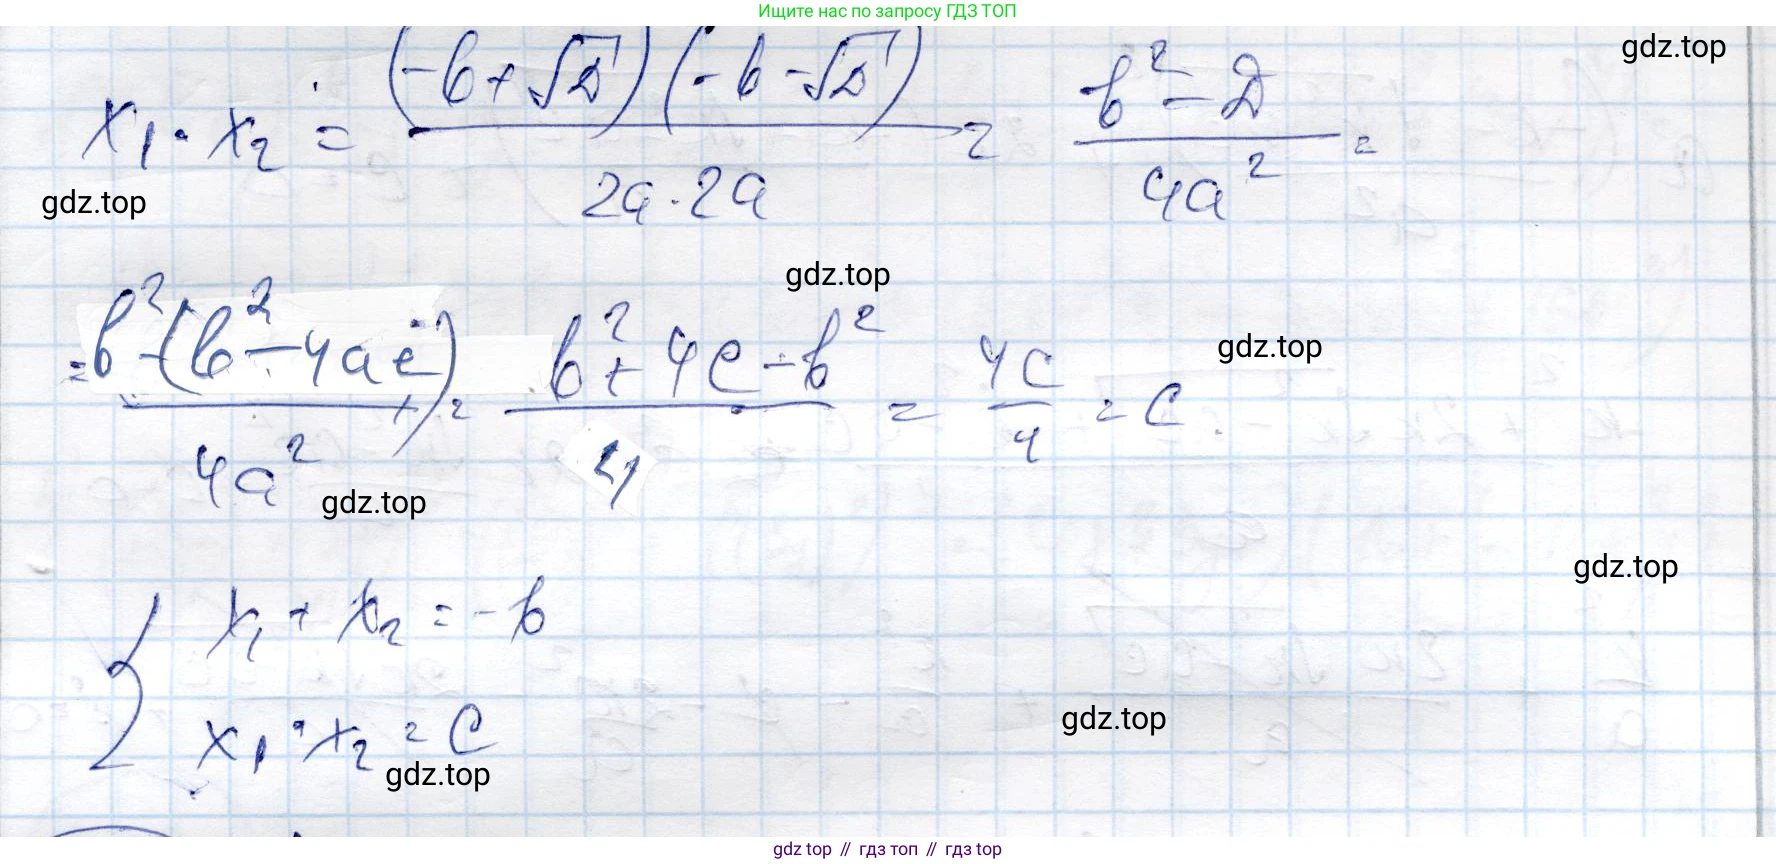 Ищите нас по запросу ГДЗ ТОП
gdz.top
x₁ · x₂ = (-b + √D)(-b - √D) / 2a · 2a = b² - D / 4a² =
gdz.top
gdz.top
= b² - (b² - 4ac) / 4a² = b² + 4c - b² / 4 = 4c / 4 = c.
gdz.top
gdz.top
gdz.top
{ x₁ + x₂ = -b
x₁ · x₂ = c
gdz.top
gdz.top
gdz top // гдз топ // гдз top